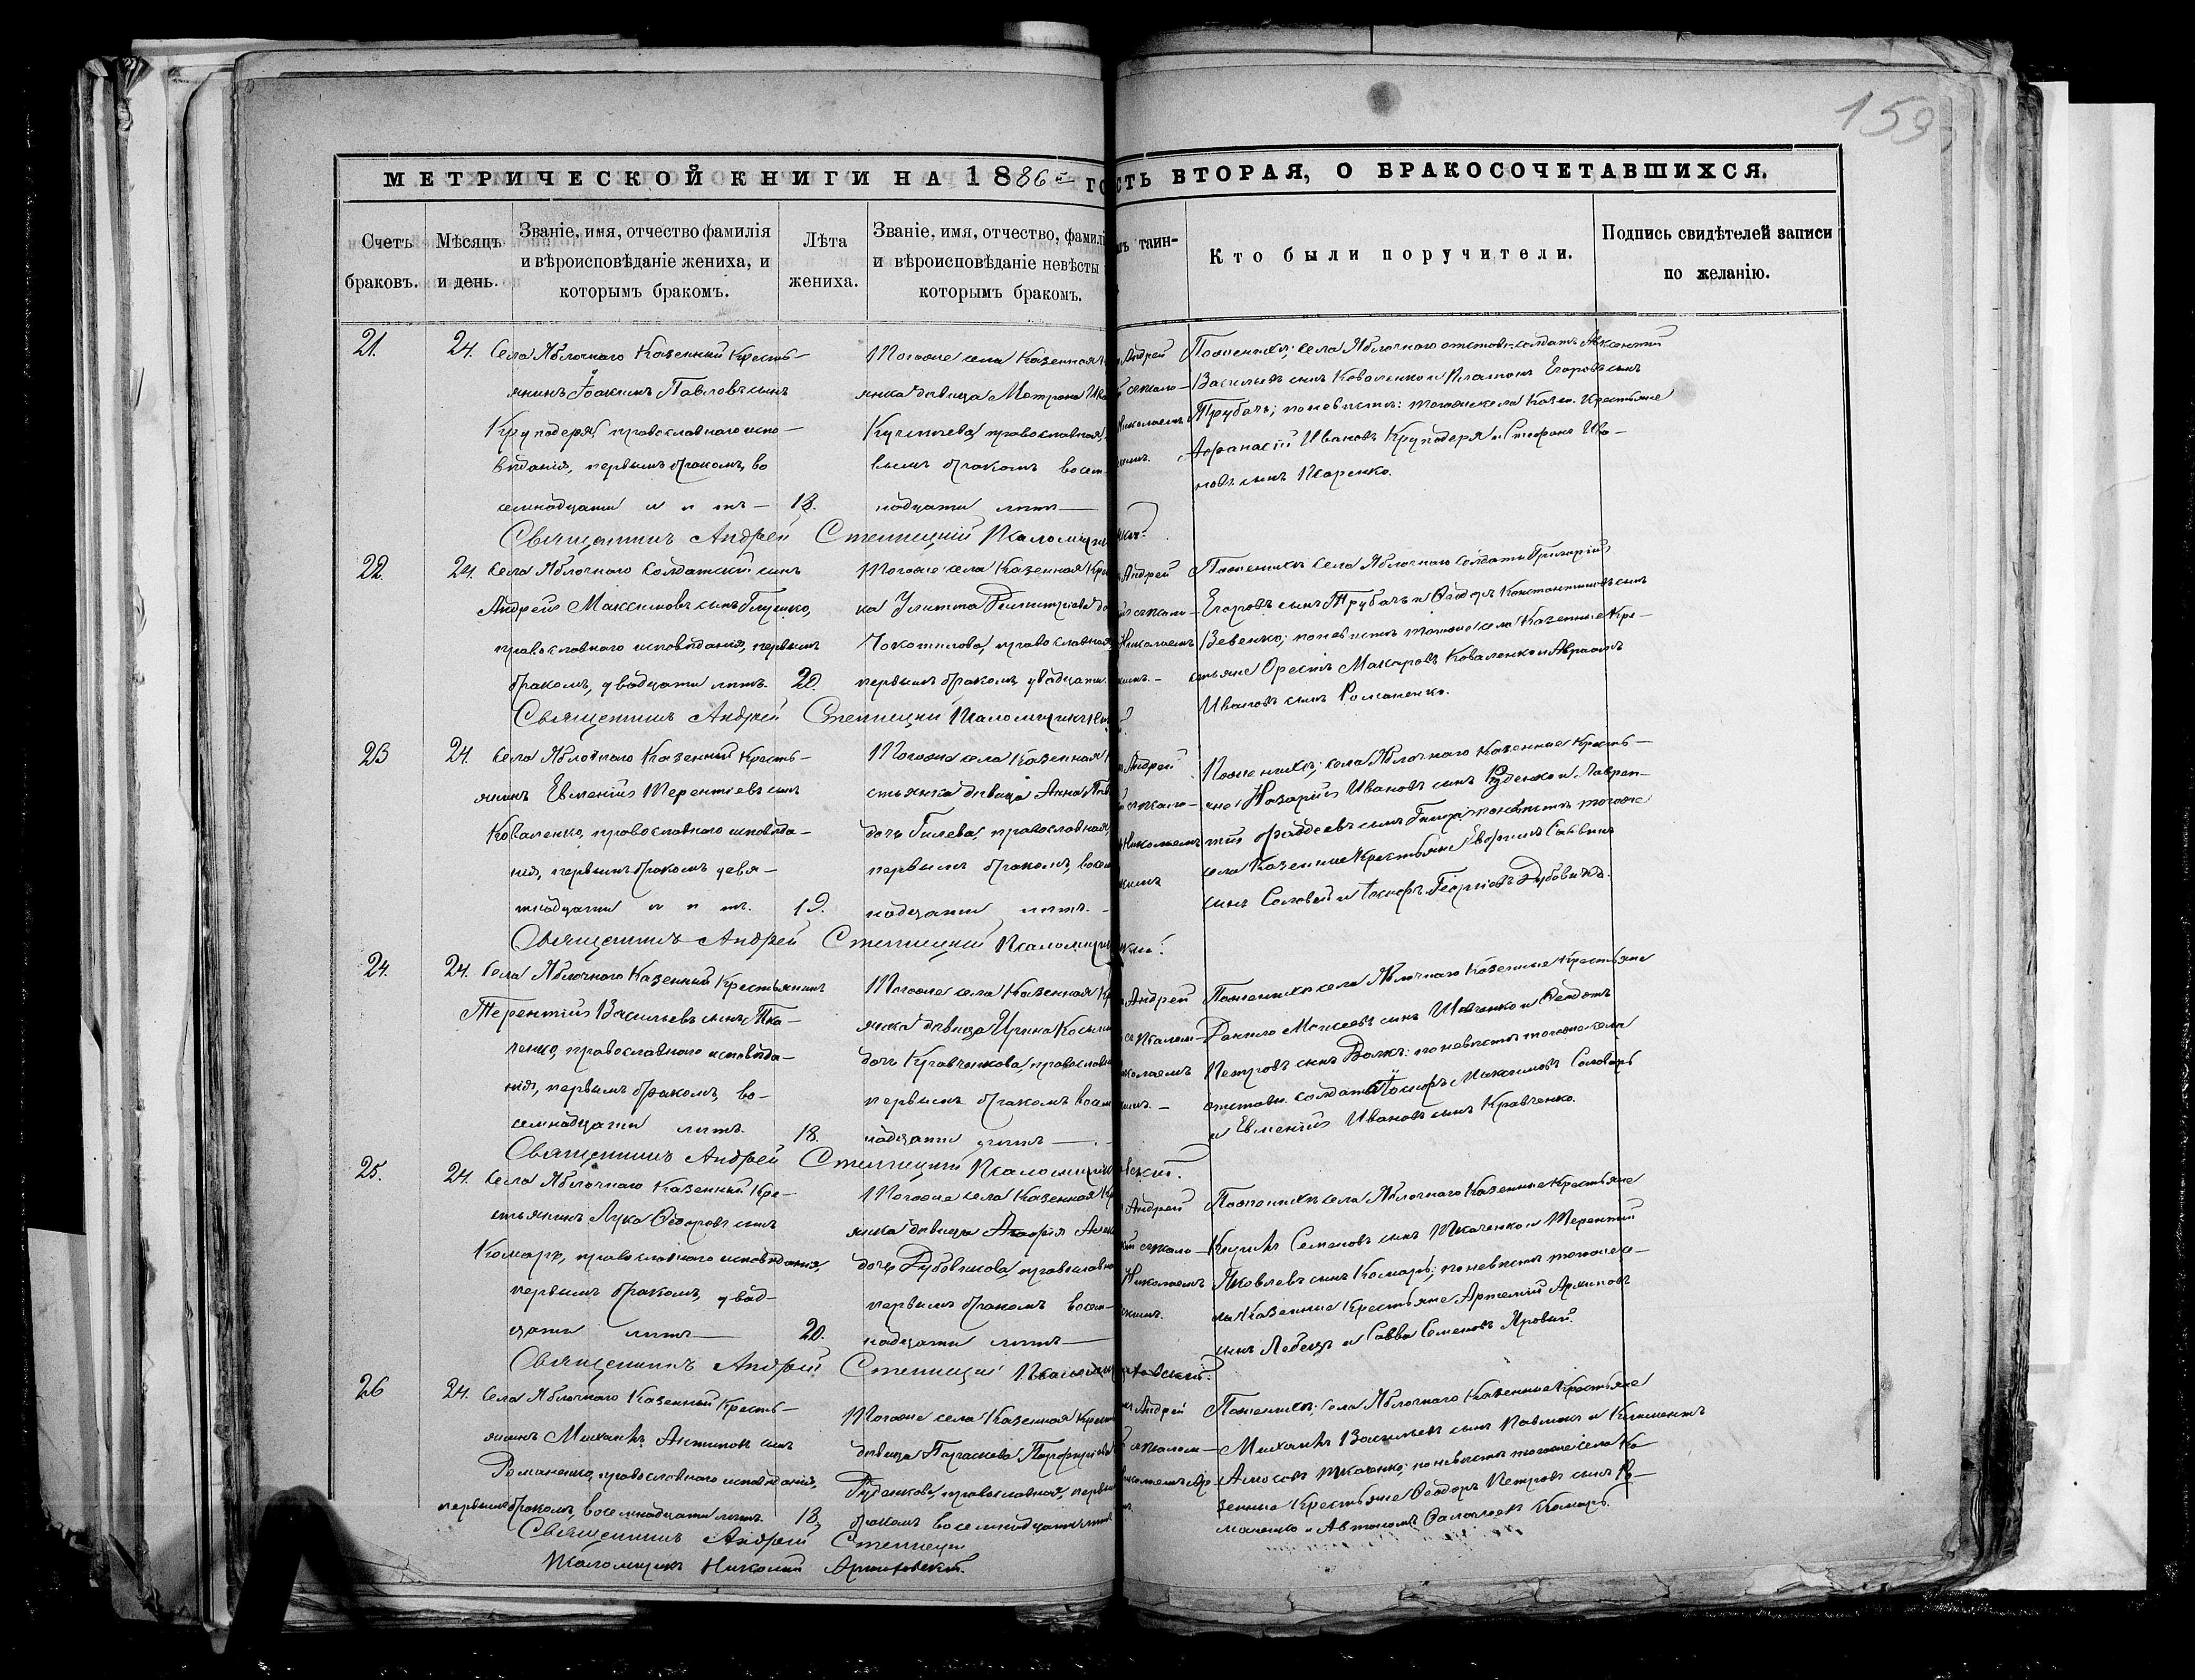 159
МЕТРИЧЕСКОЙ КНИГИ НА 1886й ГО
СТЬ ВТОРАЯ, О БРАКОСОЧЕТАВШИХСЯ.
Счетъ браковъ.
Мѣсяцъ и день.
Званіе, имя, отчество фамилія
и вѣроисповѣданіе жениха, и
которымъ бракомъ.
Лѣта
жениха.
Званіе, имя, отчество, фамилі
и вѣроисповѣданіе невѣсты
которымъ бракомъ.
таин-
Кто были поручители.
Подпись свидѣтелей записи
по желанію.
21.
24.
Села Яблочнаго Казенный Кресть-
янинъ Іоакимъ Павловъ сынъ
Круподеря, православнаго испо-
вѣданія, первымъ бракомъ, во
семнадцати лѣтъ — 18.
Тогоже села Казенная
янка дѣвица Матрона
православная,
вымъ бракомъ восем-
надцати лѣтъ
Андрей
Николаемъ
По женихѣ: села Яблочнаго отставн. солдатъ Авксентій
Васильевъ сынъ Коваленко и Платонъ Егоровъ сынъ
Трубачъ; по невѣстѣ: тогоже села Казен. Крестьяне
Афанасій Ивановъ Круподеря и Стефанъ Ива-
новъ сынъ
Священникъ Андрей Степницкій Псаломщикъ
22.
24.
Села Яблочнаго Солдатскій сынъ
Андрей Максимовъ сынъ Глушко,
православнаго исповѣданія, первымъ
бракомъ, двадцати лѣтъ. 20.
Тогоже села Казенная
ка Улитта Димитріева
православная,
первымъ бракомъ, двадцати
Андрей
Николаемъ
По женихѣ села Яблочнаго солдаты Григорій
Егоровъ сынъ Трубачъ и Ѳеодоръ Константиновъ сынъ
Зевенко; по невѣстѣ тогоже села Казенные Кре-
стьяне Орестъ Макаровъ Коваленко и Авраамъ
Ивановъ сынъ Романенко.
Священникъ Андрей Степницкій Псаломщикъ
23
24.
Села Яблочнаго Казенный Кресть-
янинъ Евменій Терентіевъ сынъ
Коваленко, православнаго исповѣда-
нія, первымъ бракомъ девя-
тнадцати лѣтъ. 19.
Тогоже села Казенная
стьянка дѣвица Анна
дочь Гилева, православная,
первымъ бракомъ, восем
надцати лѣтъ.
Андрей
Николаемъ
По женихѣ; села Яблочнаго Казенные Кресть-
яне Назарій Ивановъ сынъ Руденко и Лаврен-
тій Фаддеевъ сынъ по невѣстѣ тогоже
села Казенные Крестьяне Саввинъ
сынъ Соловей и Іосифъ Георгіевъ
Священникъ Андрей Степницкій Псаломщикъ
24.
24.
Села Яблочнаго Казенный Крестьянинъ
Терентій Васильевъ сынъ Тка-
ченко, православнаго исповѣда-
нія, первымъ бракомъ, во-
семнадцати лѣтъ. 18.
Тогоже села Казенная Кр
янка дѣвица Ирина
дочь Кравченкова, православн
первымъ бракомъ восем
надцати лѣтъ
Андрей
По женихѣ села Яблочнаго Казенные Крестьяне
Данило Моисеевъ сынъ Шевченко и Ѳеодотъ
Петровъ сынъ Волкъ: по невѣстѣ тогоже села
отставн. солдаты Іосифъ Максимовъ
и Евменій Ивановъ сынъ Кравченко.
Священникъ Андрей Степницкій Псаломщикъ
25.
24.
Села Яблочнаго Казенный Кре-
стьянинъ Лука Ѳедоровъ сынъ
Комаръ, православнаго исповѣданія,
первымъ бракомъ, двад-
цати лѣтъ 20.
Тогоже села Казенная Кр
янка дѣвица Агафія
дочь православна
первымъ бракомъ восем-
надцати лѣтъ
Андрей
Николаемъ
По женихѣ села Яблочнаго Казенные Крестьяне
Кириллъ Семеновъ сынъ Ткаченко и Терентій
Яковлевъ сынъ Комаръ; по невѣстѣ тогоже се-
ла Казенные Крестьяне Артемій Архиповъ
сынъ Лебедь и Савва Семеновъ Яровый.
Священникъ Андрей Степницкій Псаломщикъ
26
24.
Села Яблочнаго Казенный Кресть-
янинъ Михаилъ Антиповъ сынъ
Романенко, православнаго исповѣданія,
первымъ бракомъ, восемнадцати лѣтъ. 18.
Тогоже села Казенная Крест
дѣвица Параскева Порфиріева
Руденкова, православная, первы
бракомъ восемнадцати
Андрей
По женихѣ; села Яблочнаго Казенные Крестьяне
Михаилъ Васильевъ сынъ Павлюкъ и Климентъ
Амосовъ Ткаченко; по невѣстѣ тогоже села Ка-
зенные Крестьяне Ѳеодоръ Петровъ сынъ Ро-
маненко и Автономъ Комаръ.
Священникъ Андрей Степницкій
Псаломщикъ Николай